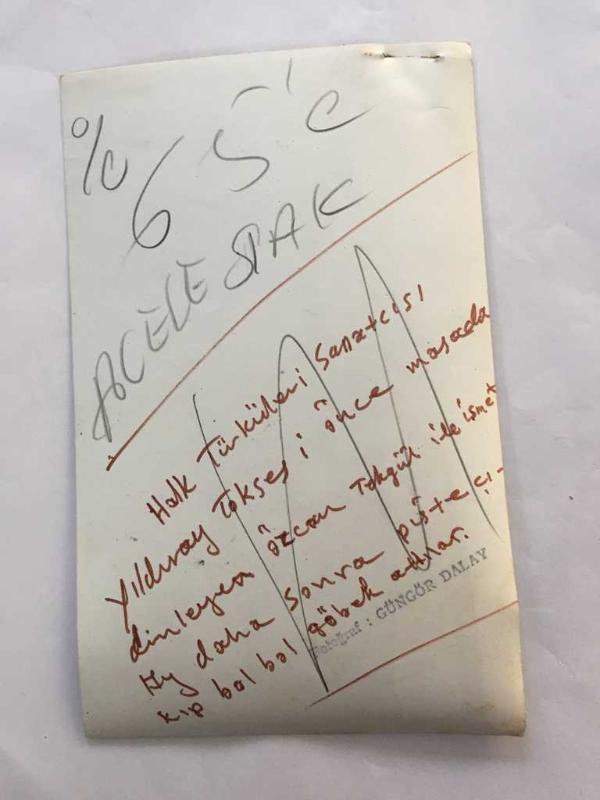 % 65'e
ACELE
Halk Türküleri sanatcısı
Yıldıray Tokses i önce masada
dinleyen özcan Tekgül ile ismet
Ay daha sonra piste çı-
kıp bol bol göbek attılar.
Fotoğraf : GÜNGÖR DALAY